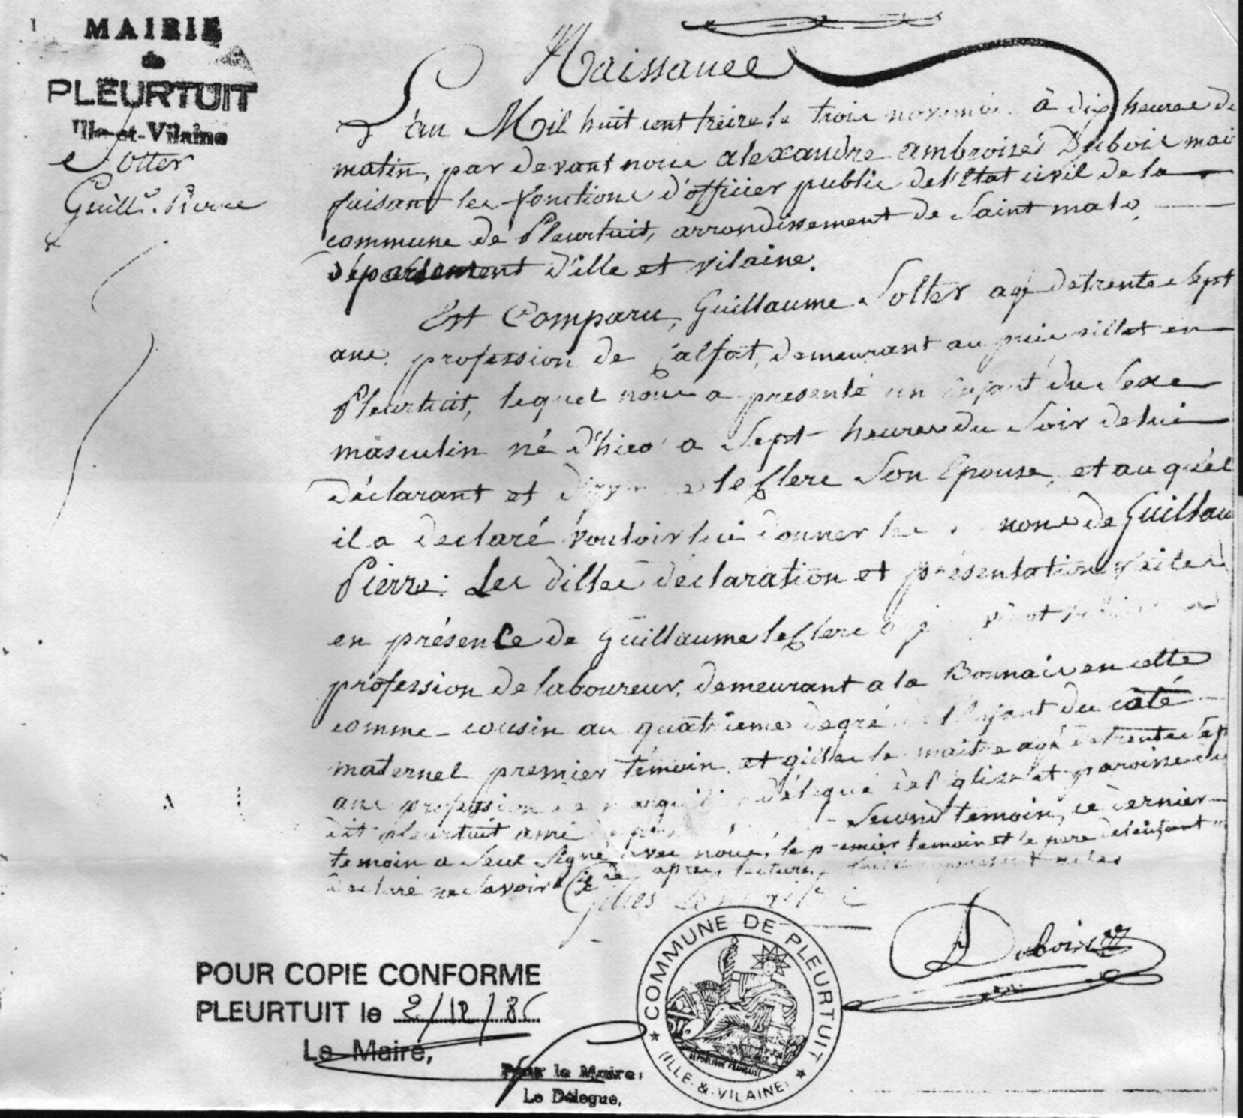 1
MAIRIE
de
PLEURTUIT
Ille-et-Vilaine
Solter
Guill.e Pierre
Naissance
L'an Mil huit cent treize le trois novemb. à dix heures du
matin, par devant nous alexandre ambroise Dubois mai
faisant les fonctions d'officier public de l'Etat civil de la
commune de Pleurtuit, arrondissement de Saint malo,
département d'ille et vilaine.
Est Comparu, Guillaume Solter agé de trente sept
ans, profession de Calfat, demeurant au en
Pleurtuit, lequel nous a presenté un enfant du Sexe
masculin né d'hier a Sept heures du Soir de lui
déclarant et le Clerc Son Epouse, et au quel
il a declaré vouloir lui donner les noms de Guillau
Pierre. Les dittes déclaration et présentation faites
en présence de Guillaume le Clerc
profession de laboureur, demeurant a la Bonnais en cette
comme cousin au quatrieme degré de l'enfant du coté
maternel premier témoin, et gilles le maitre agé de trente sept
ans profession de délégué de l'église et paroisse du
dit pleurtuit ami Second temoin, ce dernier
temoin a Seul Signé avec nous, le premier temoin et le pere de l'enfant
declaré ne savoir après lecture
Gilles
Dubois
POUR COPIE CONFORME
PLEURTUIT le 2/12/86
Le Maire,
Pour le Maire,
Le Délégué,
COMMUNE DE PLEURTUIT
(ILLE-&-VILAINE)